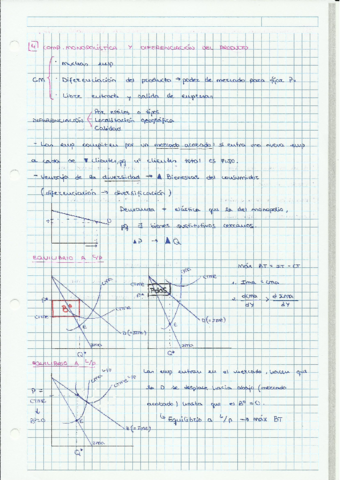 4 COMP. MONOPOLÍSTICA Y DIFERENCIACIÓN DEL PRODUCTO
· Muchas emp
CM · Diferenciación del producto → poder de mercado para fijar P.
· Libre entrada y salida de empresas
DIFERENCIACIÓN
Por estilos o tipos
Localización geográfica
Calidad
- Las emp compiten por un mercado acotado: si entra una nueva emp
a costa de clientes, pq nº clientes total es fijo.
- Ventaja de la diversidad → ▲ Bienestar del consumidor
(diferenciación → diversificación)
Demanda + elástica que la del monopolio,
pq ∃ bienes sustitutivos cercanos.
→ ▲Q
EQUILIBRIO A C/P
máx BT = IT - CT
CMe
P*
CMe
B°
E
D(=IMe)
IMa
Q*
CMe
P*
E
D(=IMe)
Q*
· IMa = CMa
· dCMa/dY > dIMa/dY
EQUILIBRIO A L/P
P=
CMe
B°=0
E
D(=IMe)
IMa
Q*
Las emp entran en el mercado, hacen que
la D se desplace hacia abajo (mercado
acotado) hasta que el B°=0.
↳ Equilibrio a L/p → máx BT